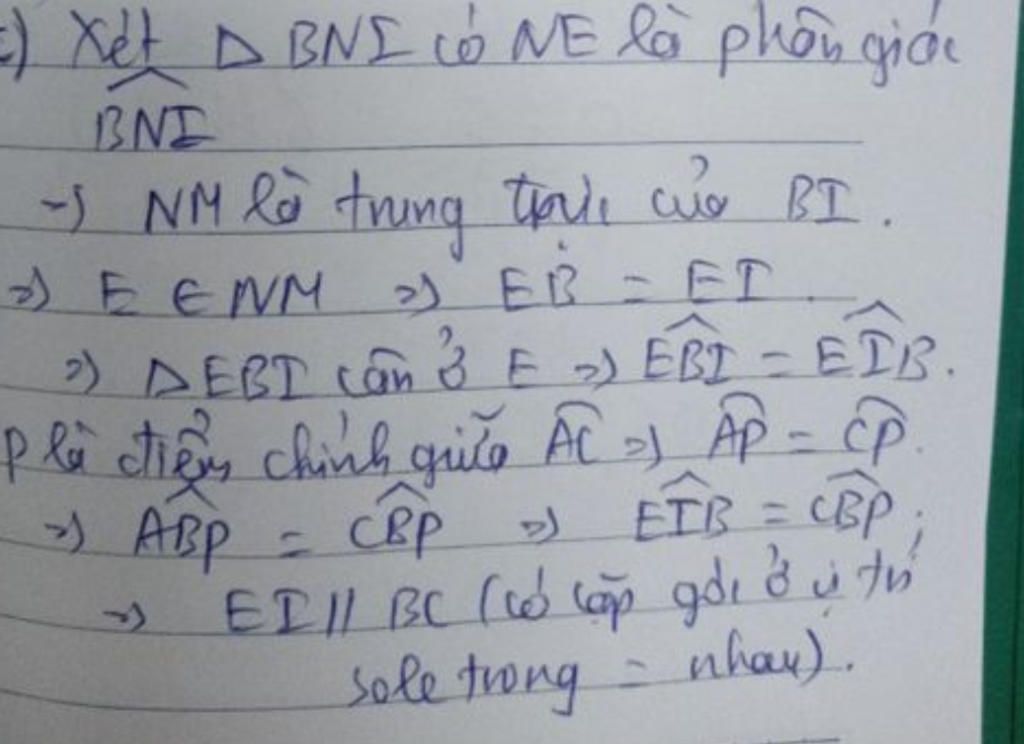 c) Xét △ BNI có NE là phân giác
$\widehat{BNI}$
→ NM là trung trực của BI.
⇒ E ∈ NM ⇒ EB = EI.
⇒ △EBI cân ở E ⇒ $\widehat{EBI}$ = $\widehat{EIB}$.
P là điểm chính giữa $\overset{\frown}{AC}$ ⇒ $\overset{\frown}{AP}$ = $\overset{\frown}{CP}$.
⇒ $\widehat{ABP}$ = $\widehat{CBP}$ ⇒ $\widehat{EIB}$ = $\widehat{CBP}$;
⇒ EI // BC (có cặp góc ở vị trí
sole trong = nhau).